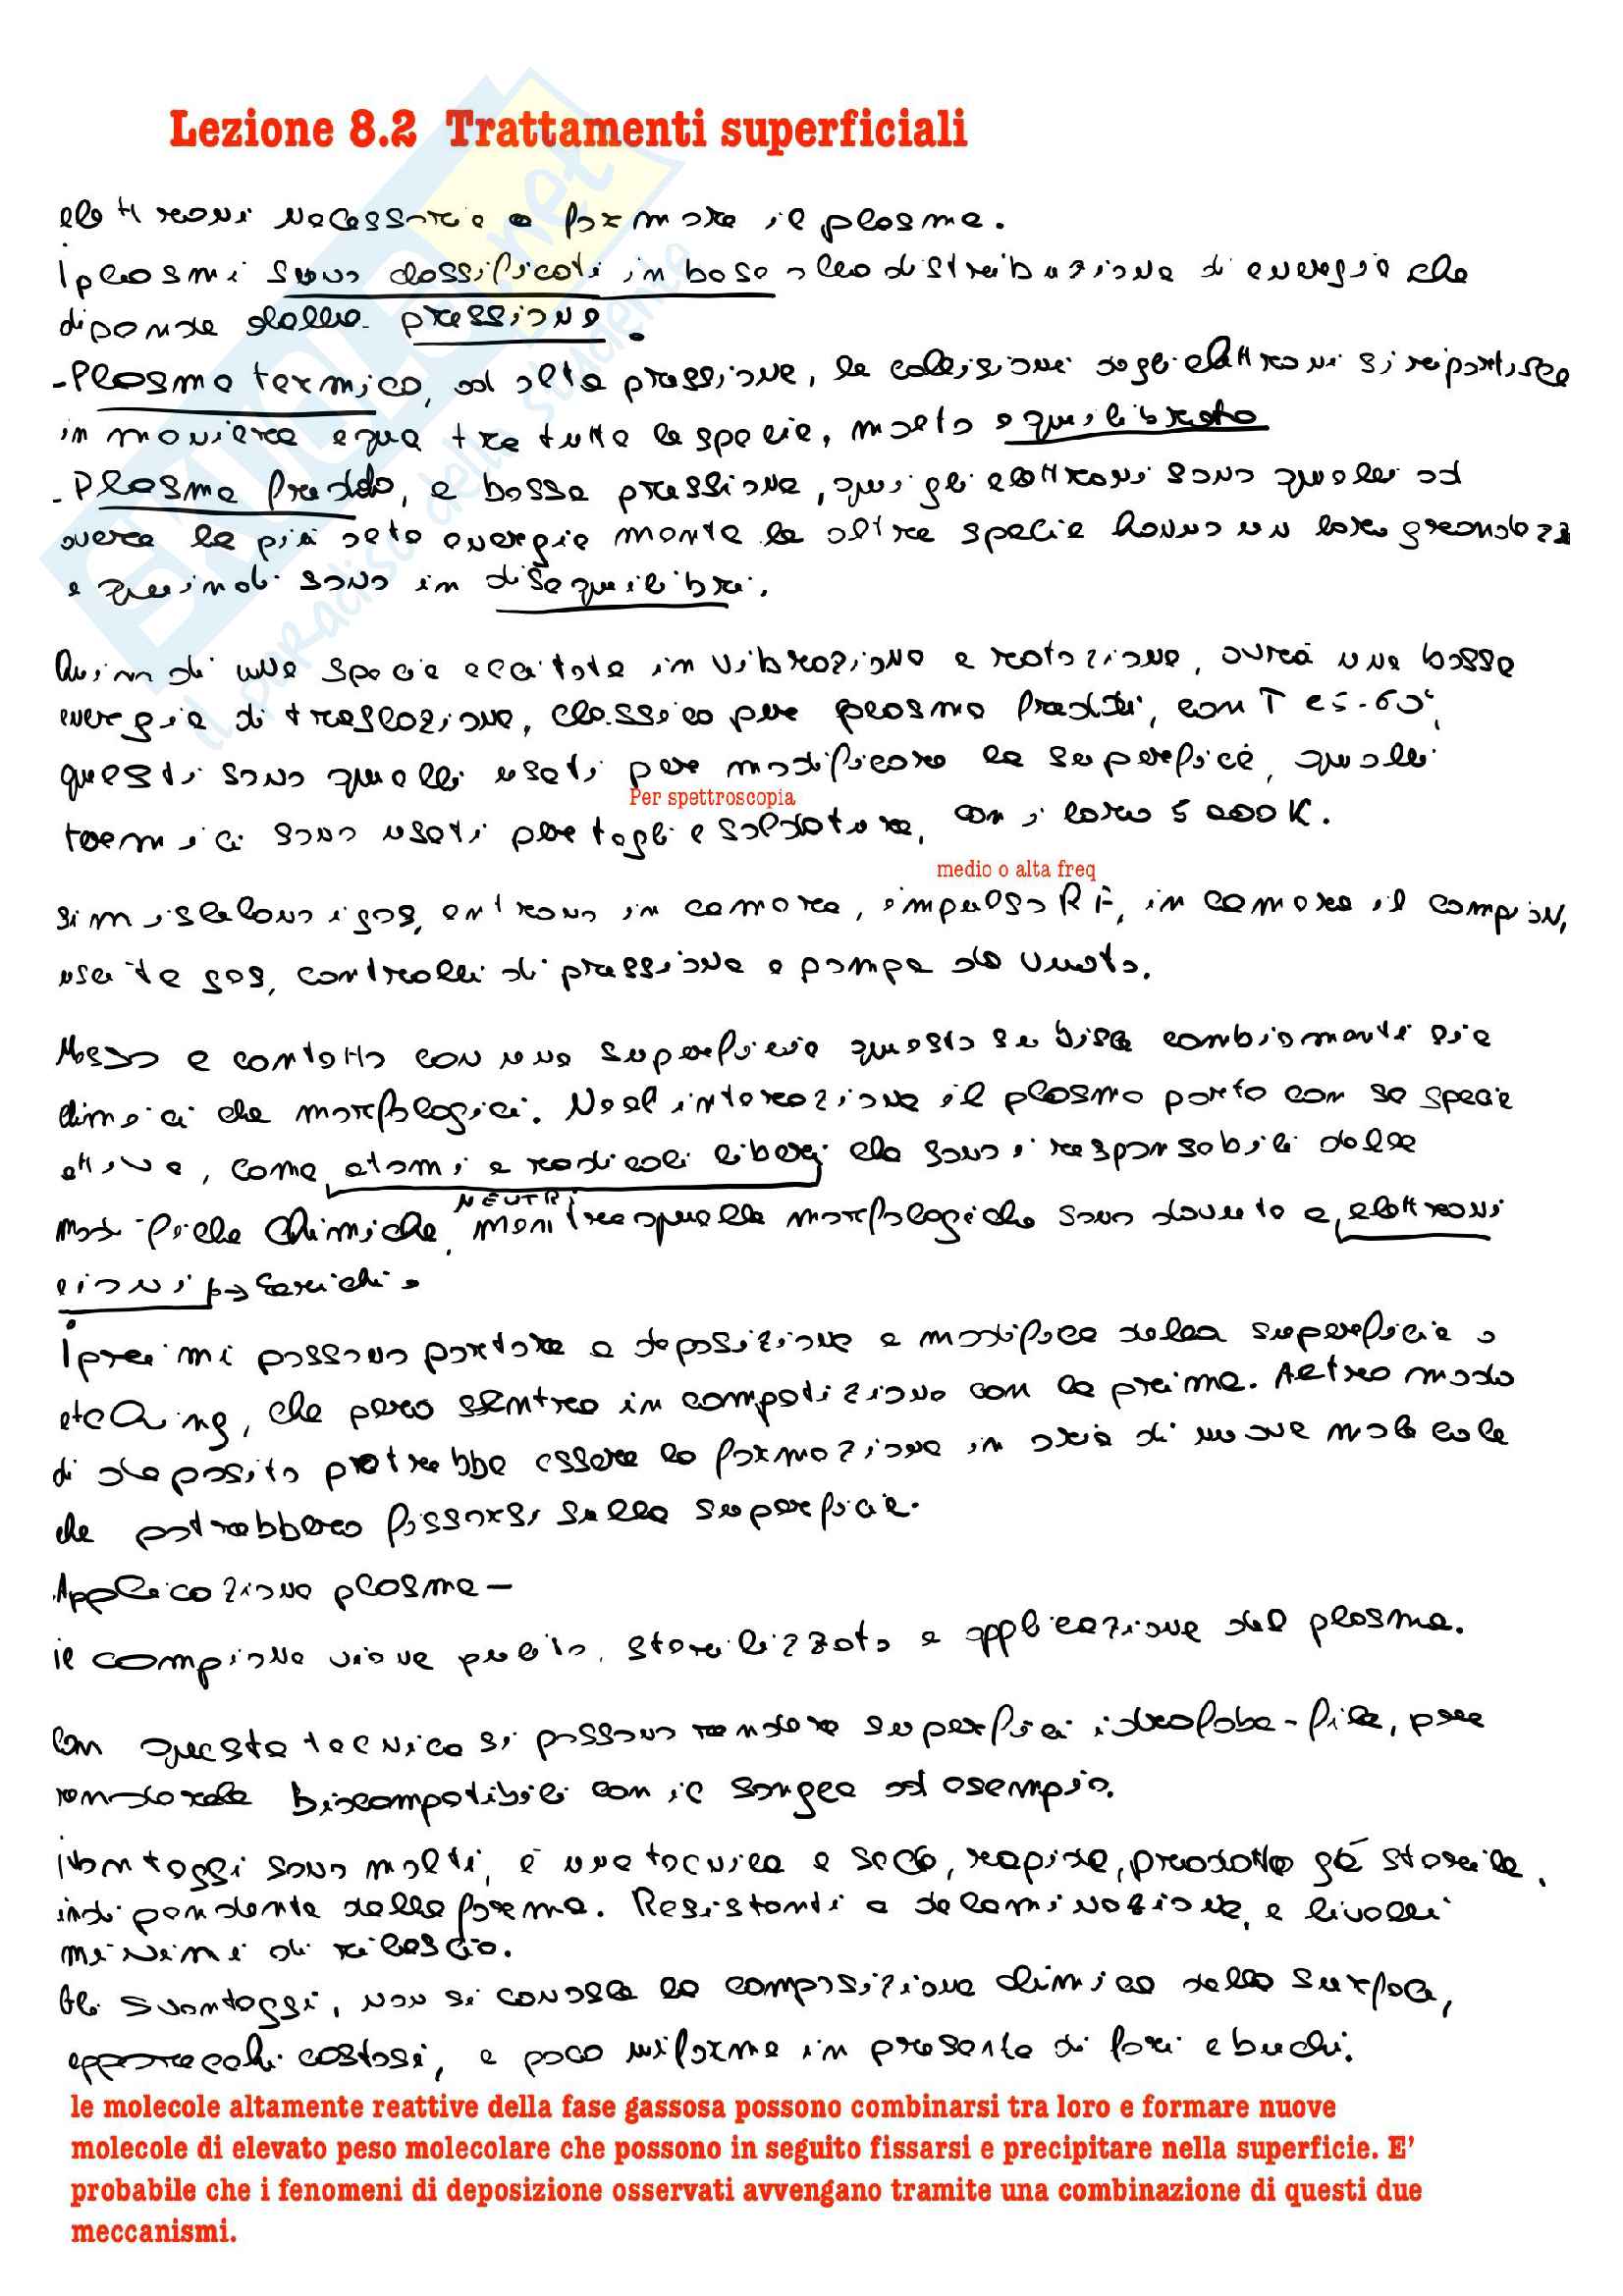 Lezione 8.2 Trattamenti superficiali
elettroni necessarie a formare il plasma.
I plasmi sono classificati in base alla distribuzione di energia che
dipende dalla pressione.
- Plasma termico, ad alta pressione, le collisioni degli elettroni si ripartisce
in maniera equa tra tutte le specie, molto equilibrato
- Plasma freddo, a bassa pressione, qui gli elettroni sono quelli ad
avere la più alta energia mentre le altre specie hanno un loro grandezza
e quindi sono in disequilibri.
Quindi una specie eccitata in vibrazione e rotazione, avrà una bassa
energia di traslazione, classico per plasma freddi, con T 25-60°,
questi sono quelli usati per modificare la superficie, quelli
Per spettroscopia
termici sono usati per tagli e saldature, con i loro 5000K.
medio o alta freq
si miscelano i gas, entrano in camera, impulso RF, in camera il campion,
uscite gas, controlli di pressione e pompa da vuoto.
Messo a contatto con una superficie questo subisce cambiamenti sia
chimici che morfologici. Nell interazione il plasma porta con se specie
attive, come atomi e radicali liberi che sono i responsabili delle
NEUTRI
modifiche chimiche, mentre quelle morfologiche sono dovute a elettroni
e ioni → carichi.
I primi possono portare a deposizione e modifica della superficie o
etching, che pero sentra in competizione con la prima. Altro modo
di deposito potrebbe essere la formazione in aria di nuove molecole
che potrebbero fissarsi sulla superficie.
Applicazione plasma -
il campione viene pulito, sterilizzato e applicazione del plasma.
Con questa tecnica si possono rendere superfici idrofobe-file, per
renderle biocompatibili con il sangue ad esempio.
I vantaggi sono molti, è una tecnica a secco, rapida, prodotto già sterile,
indipendente dalla forma. Resistenti a delaminazione, e livelli
minimi di rilascio.
Gli svantaggi, non si conosce la composizione chimica della surface,
apparecchi costosi, e poco uniforme in presenta di fori e buchi.
le molecole altamente reattive della fase gassosa possono combinarsi tra loro e formare nuove
molecole di elevato peso molecolare che possono in seguito fissarsi e precipitare nella superficie. E'
probabile che i fenomeni di deposizione osservati avvengano tramite una combinazione di questi due
meccanismi.